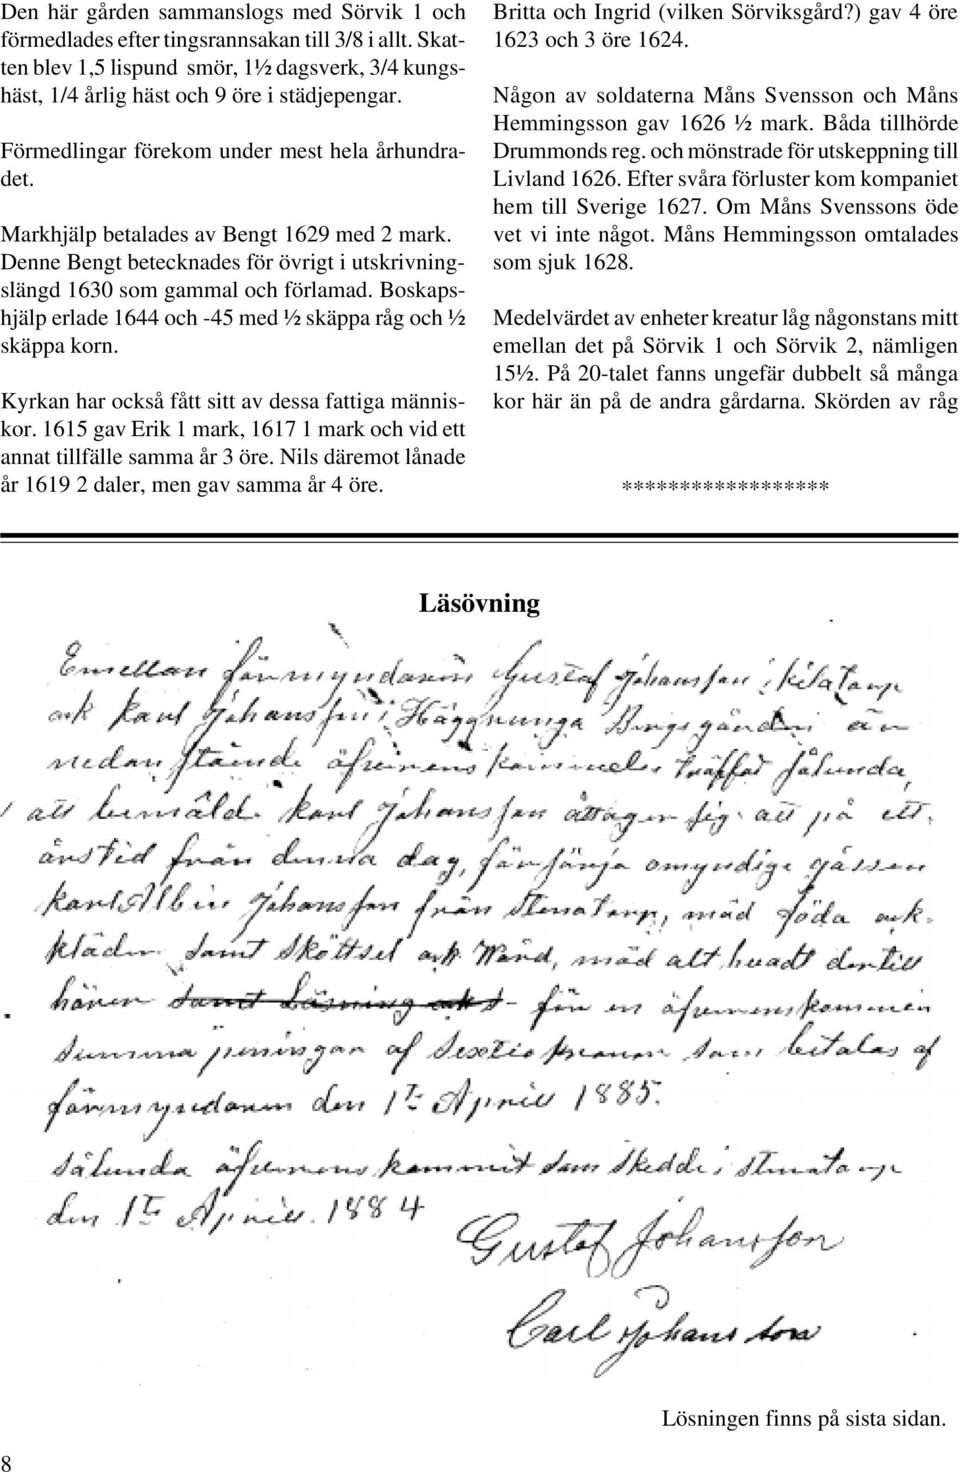 Den här gården sammanslogs med Sörvik 1 och
förmedlades efter tingsrannsakan till 3/8 i allt. Skat-
ten blev 1,5 lispund smör, 1½ dagsverk, 3/4 kungs-
häst, 1/4 årlig häst och 9 öre i städjepengar.
Förmedlingar förekom under mest hela århundra-
det.
Markhjälp betalades av Bengt 1629 med 2 mark.
Denne Bengt betecknades för övrigt i utskrivning-
slängd 1630 som gammal och förlamad. Boskaps-
hjälp erlade 1644 och -45 med ½ skäppa råg och ½
skäppa korn.
Kyrkan har också fått sitt av dessa fattiga männis-
kor. 1615 gav Erik 1 mark, 1617 1 mark och vid ett
annat tillfälle samma år 3 öre. Nils däremot lånade
år 1619 2 daler, men gav samma år 4 öre.
Britta och Ingrid (vilken Sörviksgård?) gav 4 öre
1623 och 3 öre 1624.
Någon av soldaterna Måns Svensson och Måns
Hemmingsson gav 1626 ½ mark. Båda tillhörde
Drummonds reg. och mönstrade för utskeppning till
Livland 1626. Efter svåra förluster kom kompaniet
hem till Sverige 1627. Om Måns Svenssons öde
vet vi inte något. Måns Hemmingsson omtalades
som sjuk 1628.
Medelvärdet av enheter kreatur låg någonstans mitt
emellan det på Sörvik 1 och Sörvik 2, nämligen
15½. På 20-talet fanns ungefär dubbelt så många
kor här än på de andra gårdarna. Skörden av råg
******************
Läsövning
Emellan förmyndaren Gustaf Johansson i kilatorp
ock karl Johansson i Häggnunga Bengsgården är
nedanstånde äfverenskommelse träffad sålunda,
att bemäld karl Johansson åttager sig att på ett
årstid från denna dag, försörja omyndige gåssen
karl Albin Johansson från stenatorp, mäd föda ock
kläder samt sköttsel ock Wård, mäd alt hvadt dertill
hörer samt Läsning för en äfverenskommen
summa peningar af Sextio kronor som betalas af
förmyndaren den 1te April 1885.
sålunda äfverenskommit som skedde i stenatorp
den 1te April 1884
Gustaf Johansson
Carl Johansson
Lösningen finns på sista sidan.
8